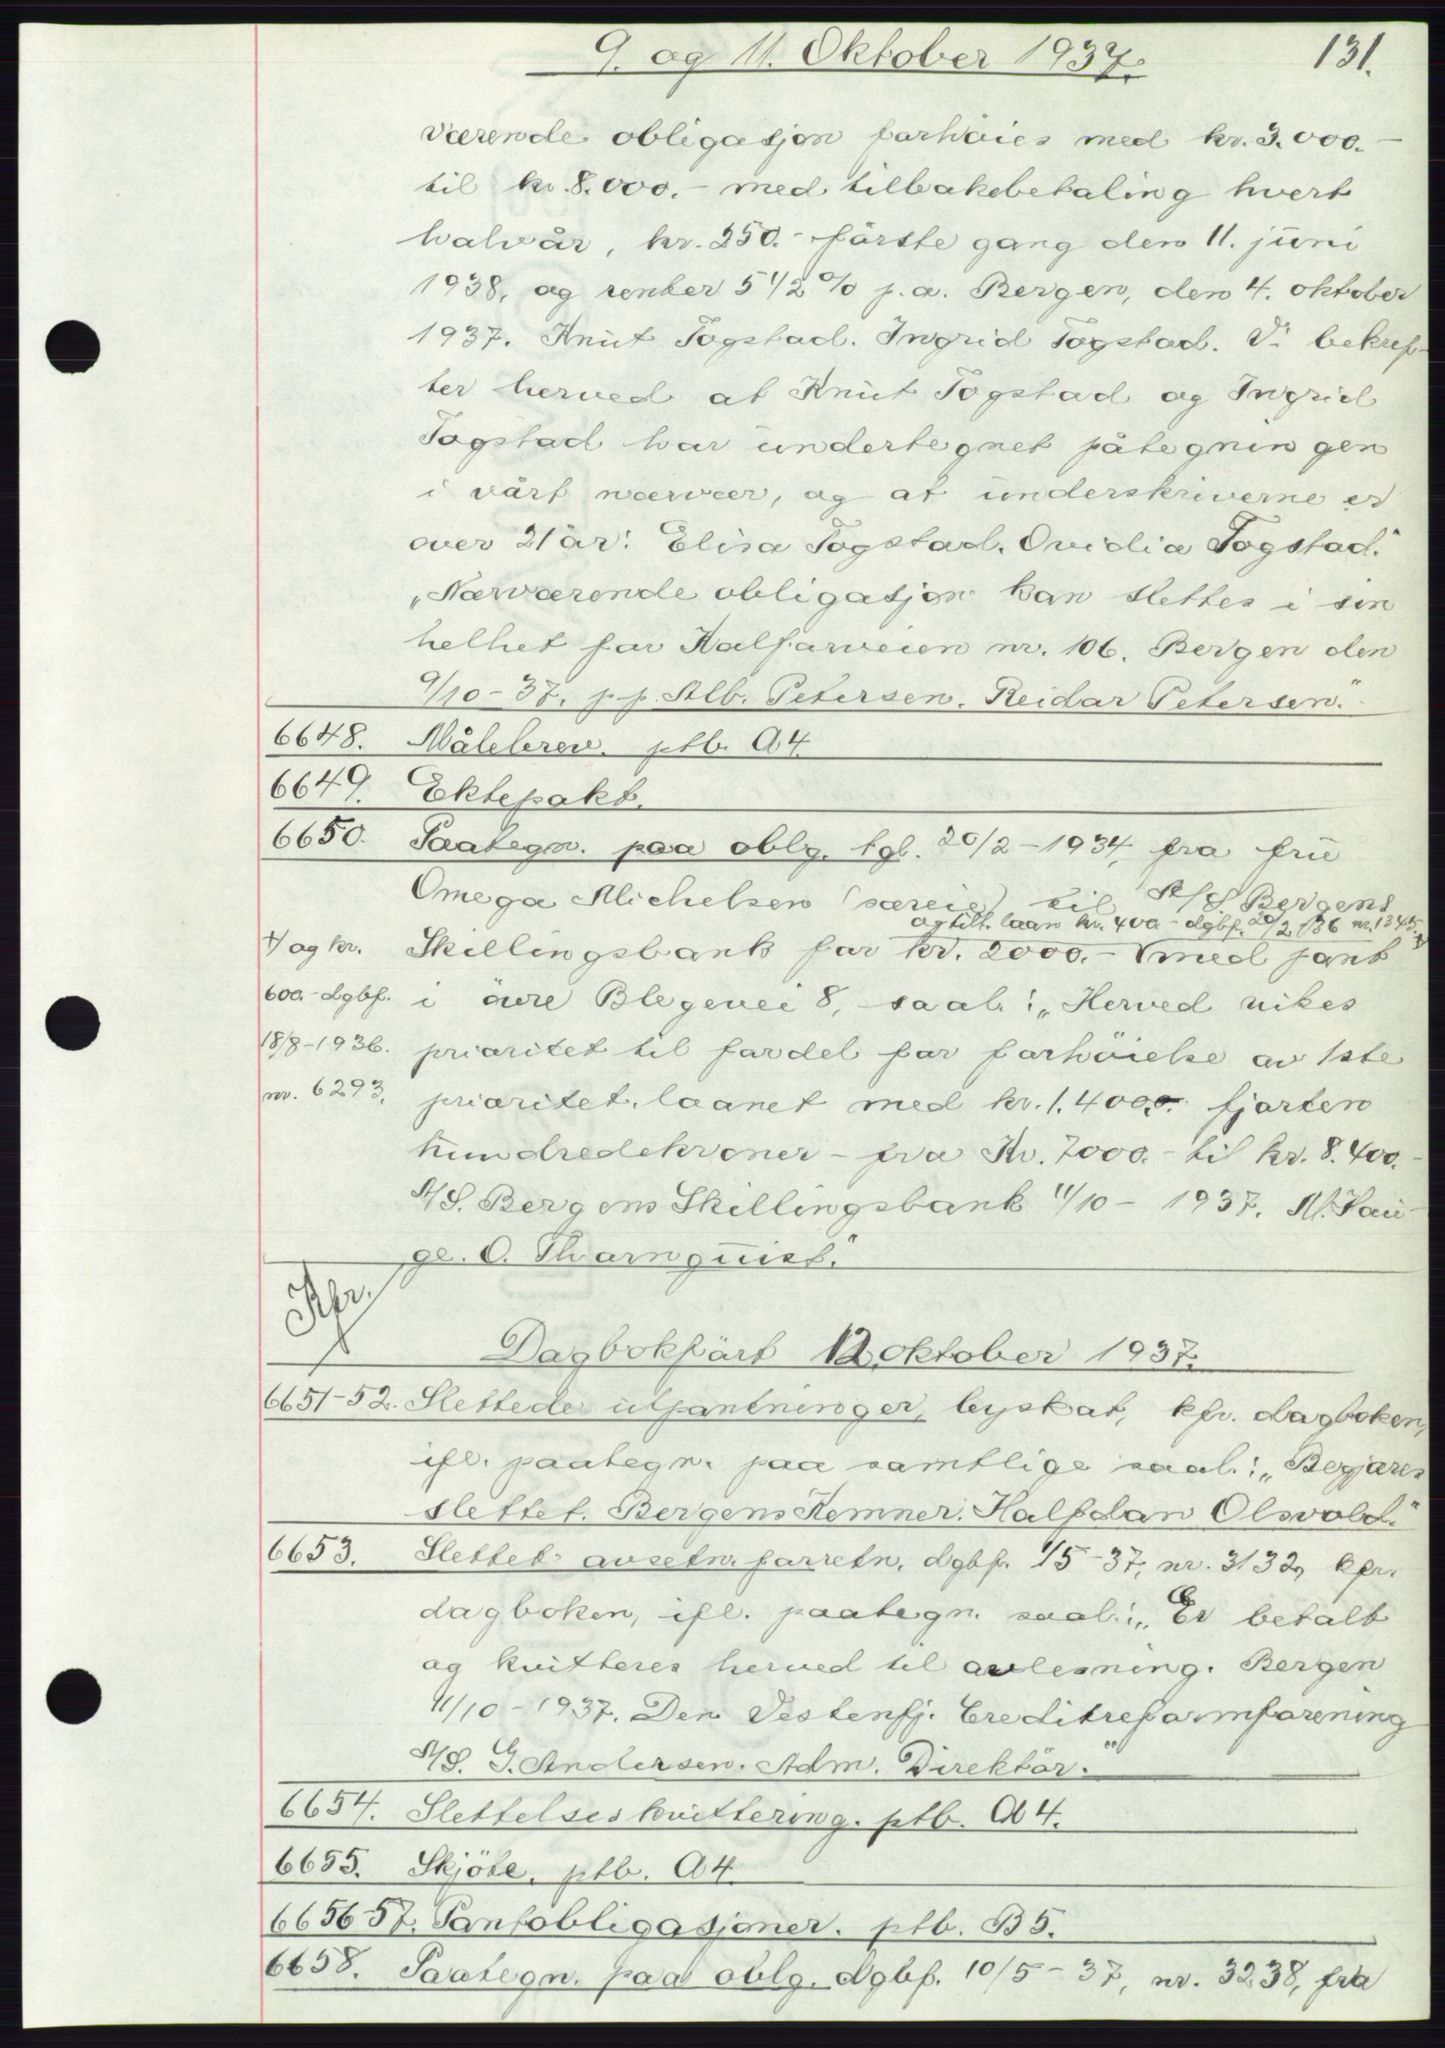 9. og 11. Oktober 1937.
131.
værende obligasjon forhöies med kr. 3.000.-
til kr. 8.000.- med tilbakebetaling hvert
halvår, kr. 250.- förste gang den 11. juni
1938, og renter 5 1/2 % p.a. Bergen, den 4. oktober
1937. Knut Togstad. Ingrid Togstad. Vi bekref-
ter herved at Knut Togstad og Ingrid
Togstad har undertegnet påtegningen
i vårt nærvær, og at underskriverne er
over 21 år: Elisa Togstad. Ovidia Togstad."
"Nærværende obligasjon kan slettes i sin
helhet for Kalfarveien nr. 106. Bergen den
9/10-37. p.p. Alb. Petersen. Reidar Petersen."
6648. Målebrev. ptb. A4.
6649. Ektepakt.
6650. Paategn. paa oblg. tgl. 20/2-1934, fra frü
Omega Michelsen (særeie) til A/S Bergens
og tilt. laan kr. 400.- dgbf. 20/2 1936 nr. 1345.
Skillingsbank for kr. 2000.- med pant
i övre Blegevei 8, saal.: "Herved vikes
prioritet til fordel for forhöielse av 1ste
prioritet laanet med kr. 1.400.- fjorten
hundredekroner - fra Kr. 7000.- til kr. 8.400.-
A/S. Bergens Skillingsbank 11/10 - 1937. M. Hau-
ge. O. Thornquist."
√ og kr.
600.- dgbf.
18/8-1936.
nr. 6293.
Kfr.
Dagbokfört 12 oktober 1937.
6651-52. Slettede utpantninger, byskat, kfr. dagboken,
ifl. paategn. paa samtlige saal.: "Begjæres
slettet. Bergens Kemner. Halfdan Olsvold."
6653. Slettet avsetn. forretn. dgbf. 1/5-37, nr. 3132, kfr.
dagboken, ifl. paategn. saal.: "Er betalt
og kvitteres herved til avlesning. Bergen
11/10-1937. Den Vestenfj. Creditreformforening
A/S. G. Andersen. Adm. Direktör."
6654. Slettelseskvittering. ptb. A4.
6655. Skjöte. ptb. A4.
6656-57. Pantobligasjoner. ptb. B5.
6658. Paategn. paa oblg. dgbf. 10/5-37, nr. 3238, fra